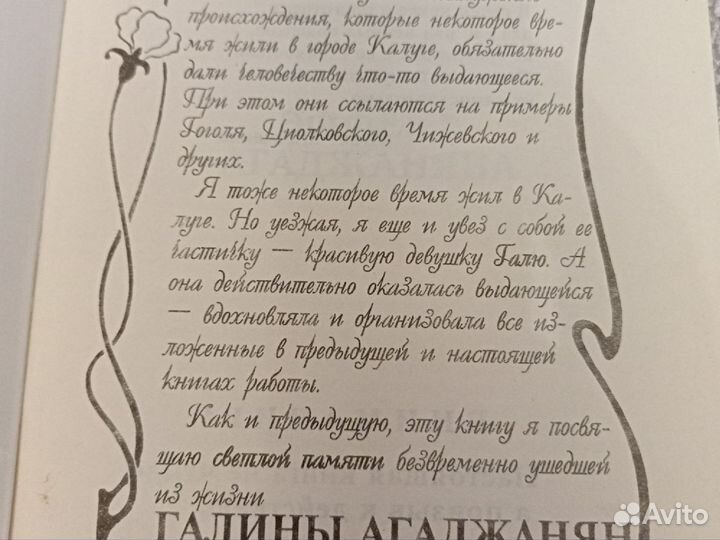 происхождения, которые некоторое вре-
мя жили в городе Калуге, обязательно
дали человечеству что-то выдающееся.
При этом они ссылаются на примеры
Гоголя, Циолковского, Чижевского и
других.
Я тоже некоторое время жил в Ка-
луге. Но уезжая, я еще и увез с собой ее
частичку — красивую девушку Галю. А
она действительно оказалась выдающейся
— вдохновляла и организовала все из-
ложенные в предыдущей и настоящей
книгах работы.
Как и предыдущую, эту книгу я посвя-
щаю светлой памяти безвременно ушедшей
из жизни
ГАЛИНЫ АГАДЖАНЯН
Avito